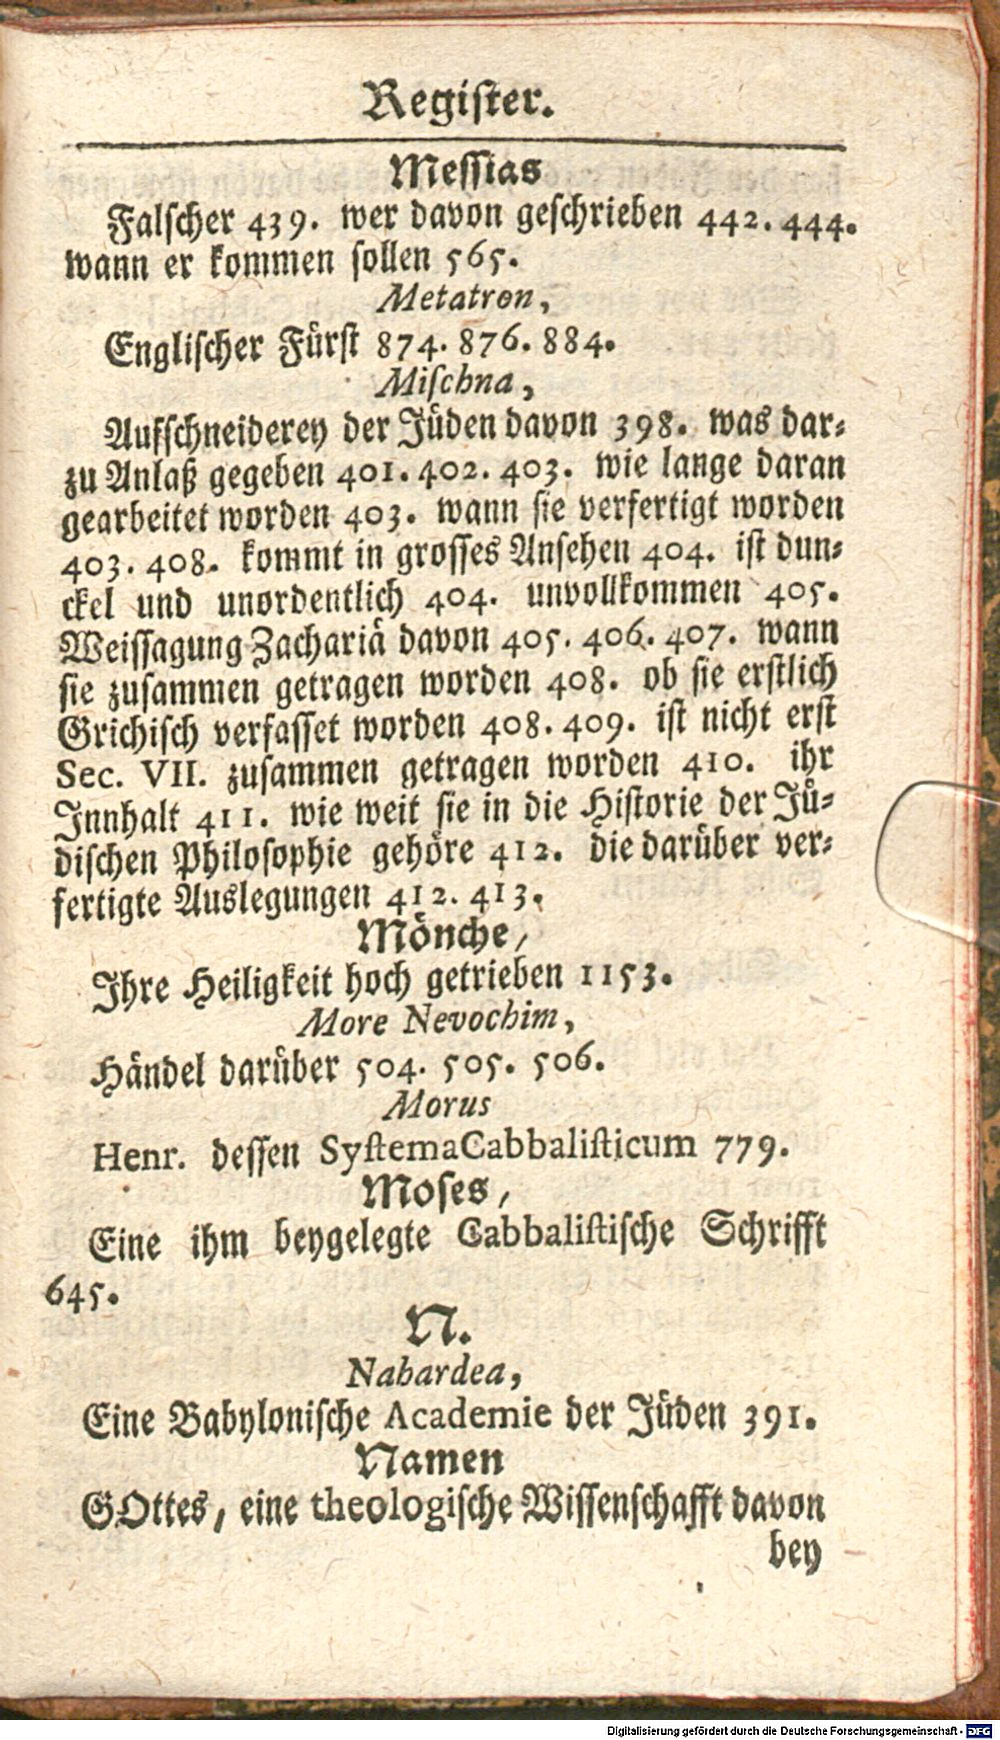 Register.
Messias
Falscher 439. wer davon geschrieben 442. 444.
wann er kommen sollen 565.
Metatron,
Englischer Fürst 874. 876. 884.
Mischna,
Aufschneiderey der Jüden davon 398. was dar-
zu Anlaß gegeben 401. 402. 403. wie lange daran
gearbeitet worden 403. wann sie verfertigt worden
403. 408. kommt in grosses Ansehen 404. ist dun-
ckel und unordentlich 404. unvollkommen 405.
Weissagung Zachariä davon 405. 406. 407. wann
sie zusammen getragen worden 408. ob sie erstlich
Grichisch verfasset worden 408. 409. ist nicht erst
Sec. VII. zusammen getragen worden 410. ihr
Innhalt 411. wie weit sie in die Historie der Jü-
dischen Philosophie gehöre 412. die darüber ver-
fertigte Auslegungen 412. 413.
Mönche,
Ihre Heiligkeit hoch getrieben 1153.
More Nevochim,
Händel darüber 504. 505. 506.
Morus
Henr. dessen Systema Cabbalisticum 779.
Moses,
Eine ihm beygelegte Cabbalistische Schrifft
645.
N.
Nahardea,
Eine Babylonische Academie der Jüden 391.
Namen
GOttes, eine theologische Wissenschafft davon
bey
Digitalisierung gefördert durch die Deutsche Forschungsgemeinschaft - DFG